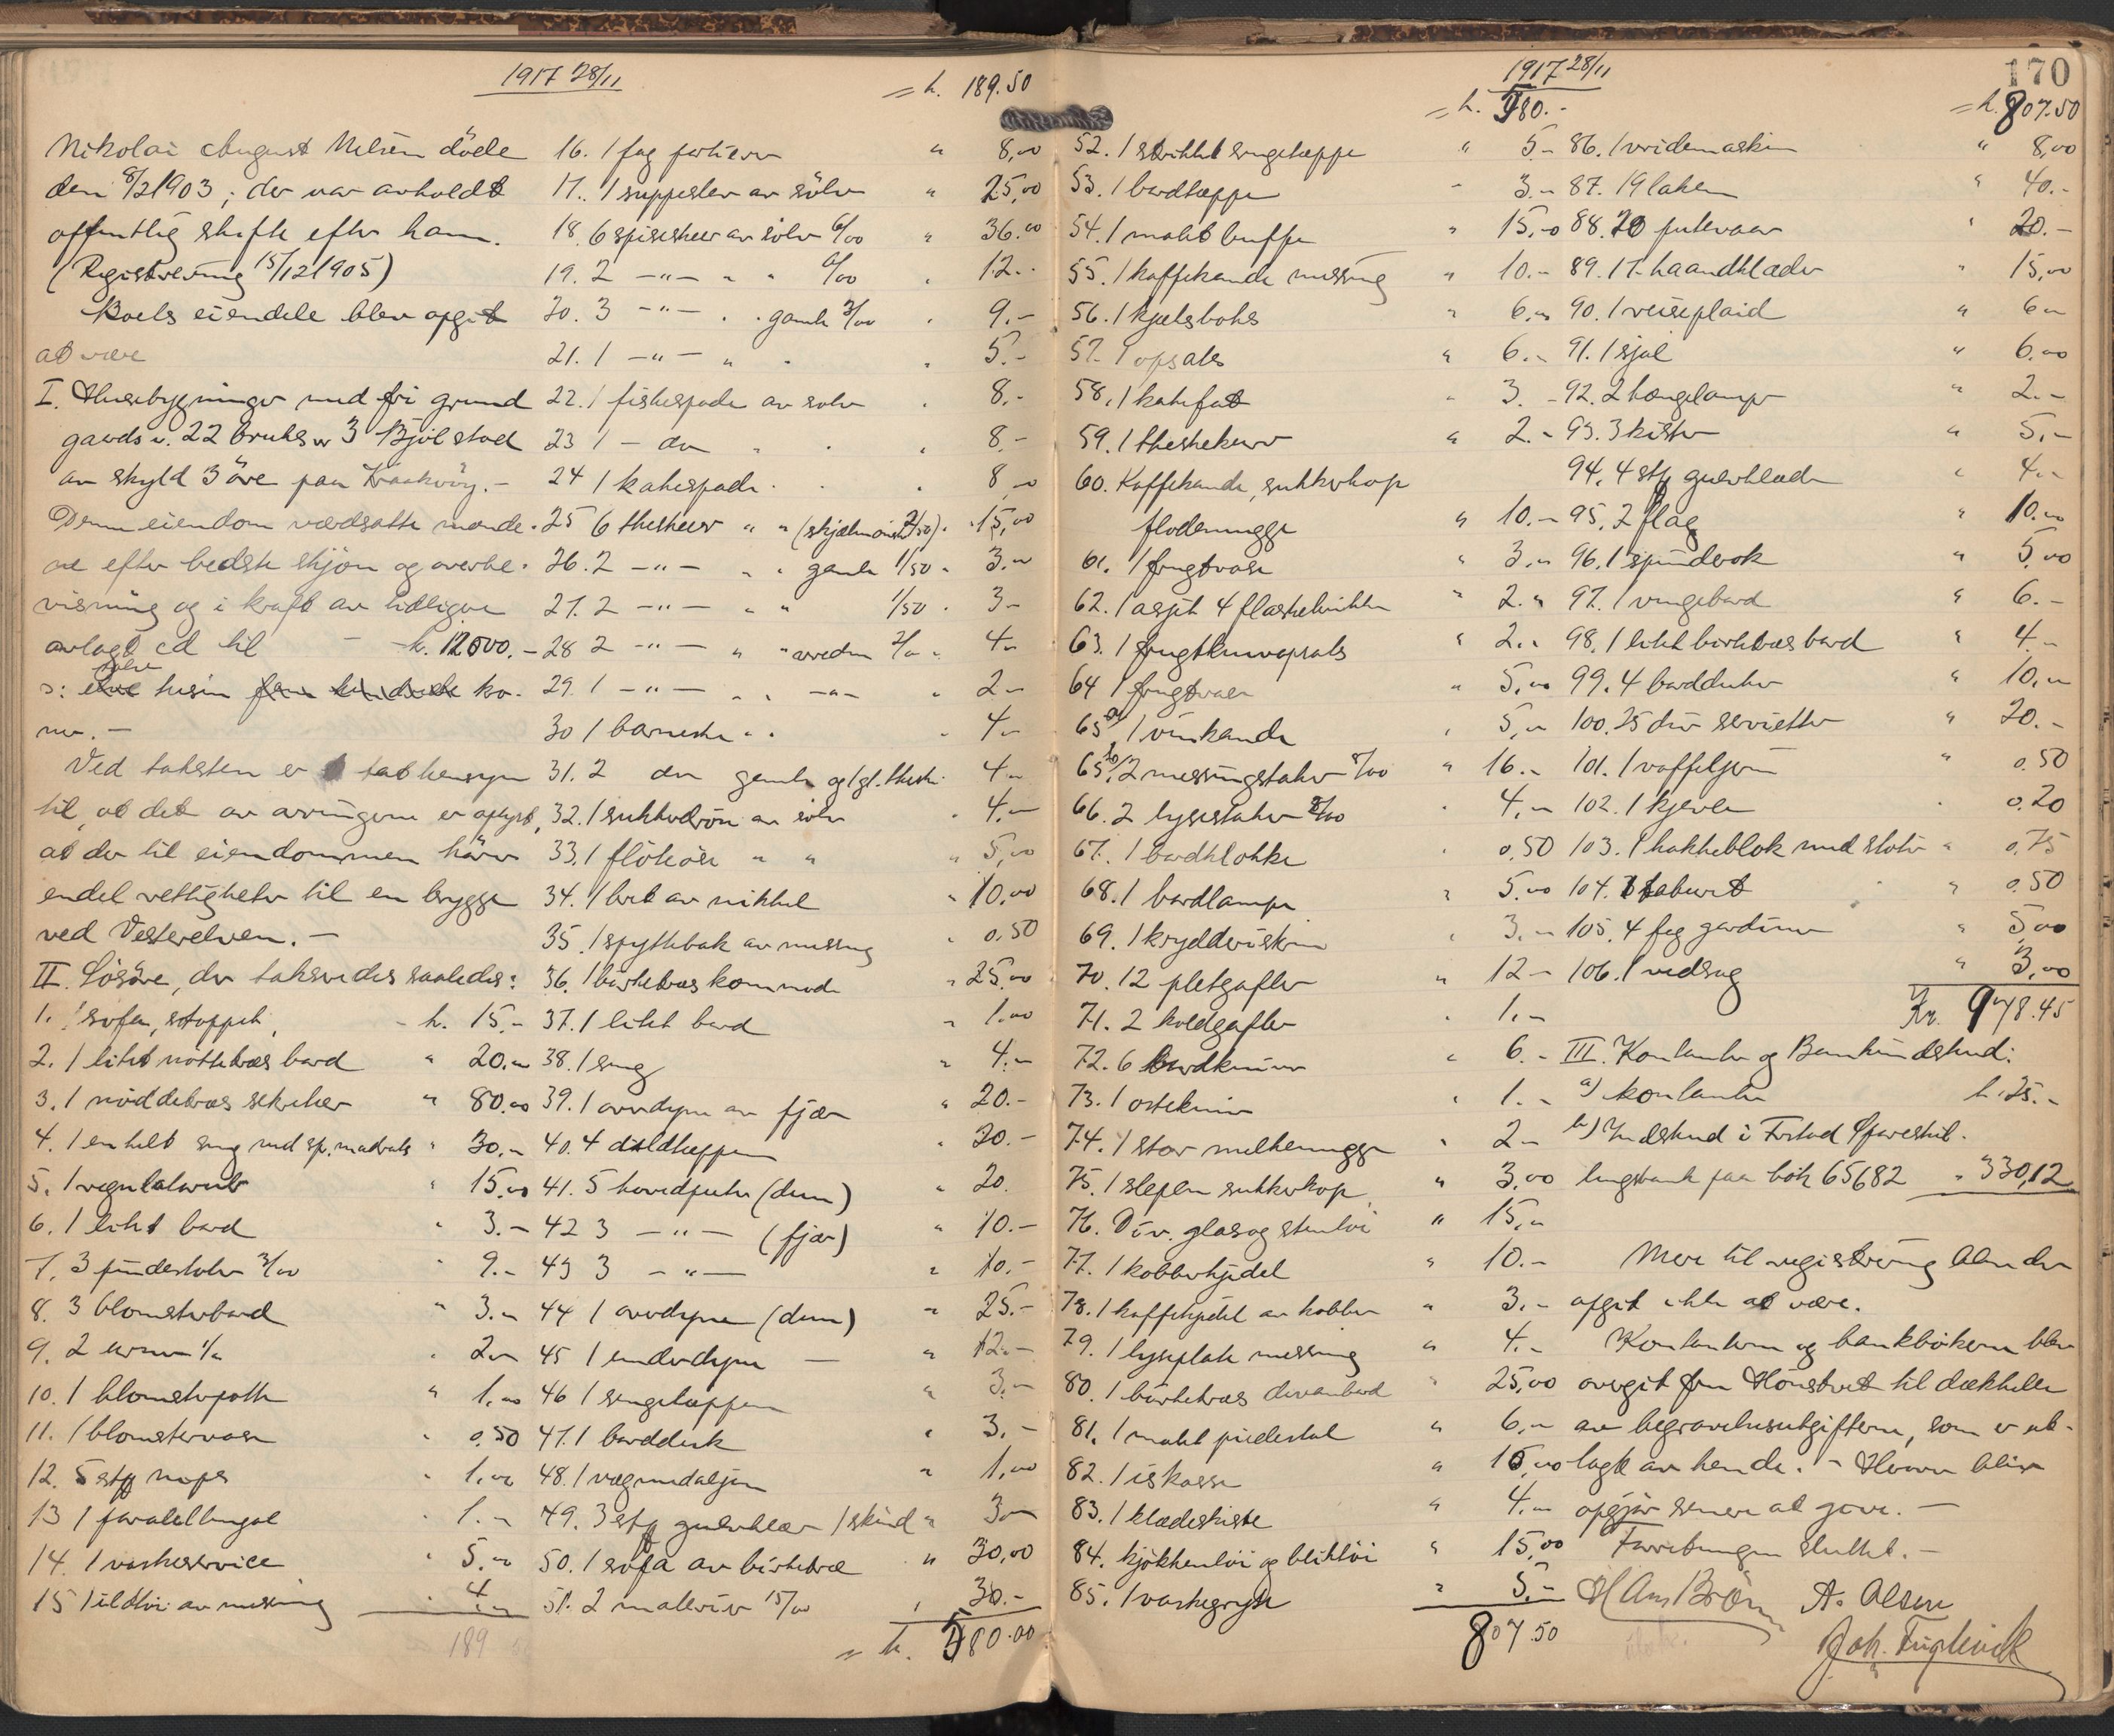 1917 28/11
Nikolai August Nilsen döde
den 8/2 1903; der var avholdt
offentlig skifte efter ham.
(Registrering 15/12 1905)
Boets eiendele blev opgit
at være
I. Husebygninger med fri grund
gaards n. 22 bruks nr 3 Bjölstad
av skyld 3 öre paa Kraakeröy.-
Denne eiendom værdsatte mænde-
ne efter bedste skjön og overbe-
visning og i kraft av tidligere
avlagt ed til - k. 12000.-
tolv
ɔ: tusin kro-
ner.-
Ved taksten er tat hensyn
til, at det av arvingerne er oplyst,
at der til eiendommen hörer
endel rettigheter til en brygge
ved Vesterelven.-
II. Lösöre, der taksredes saaledes:
1. 1 sofa, stoppet, - k. 15.-
2. 1 litet nöttetræs bord " 20.-
3. 1 nöddetræs sekretær " 80.00
4. 1 enkelt seng med sp.madrats " 30.-
5. 1 regulatorur " 15.00
6. 1 litet bord " 3.-
7. 3 pindestoler 3/00 " 9.-
8. 3 blomsterbord " 3.-
9. 2 urner 1/- " 2.-
10. 1 blomsterpotte " 1.00
11. 1 blomstervase " 0.50
12. 5 stk nips " 1.00
13 1 paralellengal " 1.-
14. 1 vaskeservice " 5.00
15 1 ildtöi av messing " 4.-
189
= k. 189.50
16. 1 fag portierer " 8,00
17. 1 suppeslev av sölv " 25,00
18. 6 spiseskeer av sölv 6/00 " 36.00
19. 2 -"- " " 6/00 " 12.-
20. 3 -"- " " gamle 3/00 " 9.-
21. 1 -"- " " " 5.-
22. 1 fiskespade av sölv " 8.-
23 1 - do " " " 8.-
24 1 kakespade " " " 8.00
25 6 theskeer " " (skjælmönst. 2/50) " 15,00
26. 2 -"- " " gamle 1/50 " 3.-
27. 2 -"- " " 1/50 " 3-
28 2 -"- " " 2/- " 4.-
29. 1 -"- " " -"- " 2-
30 1 barneske " " " 4.-
31. 2 do gamle og 1 gl. theske 4.-
32. 1 sukkerdrön av sölv " 4.-
33. 1 flöteöse " " " 5,00
34. 1 bret av nikkel " 10,00
35. 1 spyttebak av messing " 0.50
36. 1 birketræs kommode " 25.00
37. 1 litet bord " 1.00
38. 1 seng " 4.-
39. 1 overdyne av fjær " 20.-
40. 4 uldtepper " 20.-
41. 5 hovedputer (dun) " 20.
42 3 -"- (fjær) " 10.-
43 3 -"- " 10.-
44 1 overdyne (dun) " 25.-
45 1 underdyne - " 12.-
46 1 sengetæppe " 3.-
47. 1 borddisk " 3.-
48. 1 vægmedaljon " 1,00
49. 3 stk gulvklær 1 skind " 3.-
50. 1 sofa av birketræ " 30,00
51. 2 malerier 15/00 " 30.-
= k. 580.00
1917 28/11
= k. 580.-
52. 1 strikket sengetæppe " 5.-
53. 1 bordtæppe " 3.-
54. 1 malet buffe " 15.00
55. 1 kaffekande messing " 10.-
56. 1 kjæksboks " 6.-
57. 1 opsats " 6.-
58. 1 kakefat " 3.
59. 1 theskekurv " 2.-
60. Kaffekande, sukkerkop
flödemugge " 10.-
61. 1 frugtvase " 3.-
62. 1 asjet 4 flaskebrikker " 2.-
63. 1 frugtknivopsats " 2.-
64 1 frugtvase " 5.00
65 a) 1 vinkande " 5.-
65 b) 2 messingstaker 8/00 " 16.-
66. 2 lysestaker 2/00 " 4.-
67. 1 bordklokke " 0.50
68. 1 bordlampe " 5.00
69. 1 krydderiskrin " 3.-
70. 12 pletgafler " 12-
71. 2 koldgafler " 1.-
72. 6 bordkniver " 6.-
73. 1 ostekniv " 1.-
74. 1 stor melkemugge " 2-
75. 1 slepen sukkerkop " 3.00
76. Div. glas og stentöi " 15.-
77. 1 kobberkjedel " 10.-
78. 1 kaffekjedel av kobber " 3.-
79. 1 lyseplate messing " 4.-
80. 1 birketræs divanbord " 25,00
81. 1 malet piedestal " 6.-
82. 1 iskasse " 15,00
83. 1 klædeskiste " 4.-
84. kjökkentöi og bliktöi " 15,00
85. 1 vaskegryte " 5.-
807.50
170
= k. 807.50
86. 1 vridemaskin " 8,00
87. 19 laken " 40.-
88. 20 putevaar " 20.-
89. 17 haandklæder " 15,00
90. 1 reiseplaid " 6.-
91. 1 sjal " 6.00
92. 2 hængelamper " 2.-
93. 3 kister " 5.-
94. 4 stk gulvklæde " 4.-
95. 2 flag " 10.00
96. 1 spinderok " 5.00
97. 1 vingebord " 6.-
98. 1 litet birketræs bord " 4.-
99. 4 bordduker " 10,-
100. 25 div servietter " 20.-
101. 1 vaffeljern " 0.50
102. 1 kjevle " 0.20
103. 1 hakkeblok med stöter " 0.75
104. 1 taburet " 0.50
105. 4 fag gardiner " 5,00
106. 1 vedsag " 3,00
Kr. 978.45
III. Kontanter og Bankindskud:
a) kontanter k. 25.-
b) Indskud i Frstad Oparestil-
lingsbank paa bok 65682 " 330,12
Mere til registrering blev der
opgit ikke at være.
Kontanterne og bankbökerne blev
overgit frn Hönstvet til dækkelse
av begravelsesutgifterne, som er ut-
lagt av hende.- Herav blir
opgjör senere at gjøre.-
Forretningen sluttet.-
A. Olsen
Joh. Fuglevik